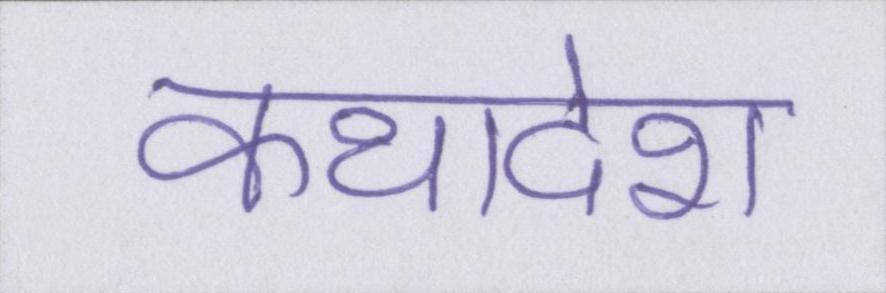 कथादेश